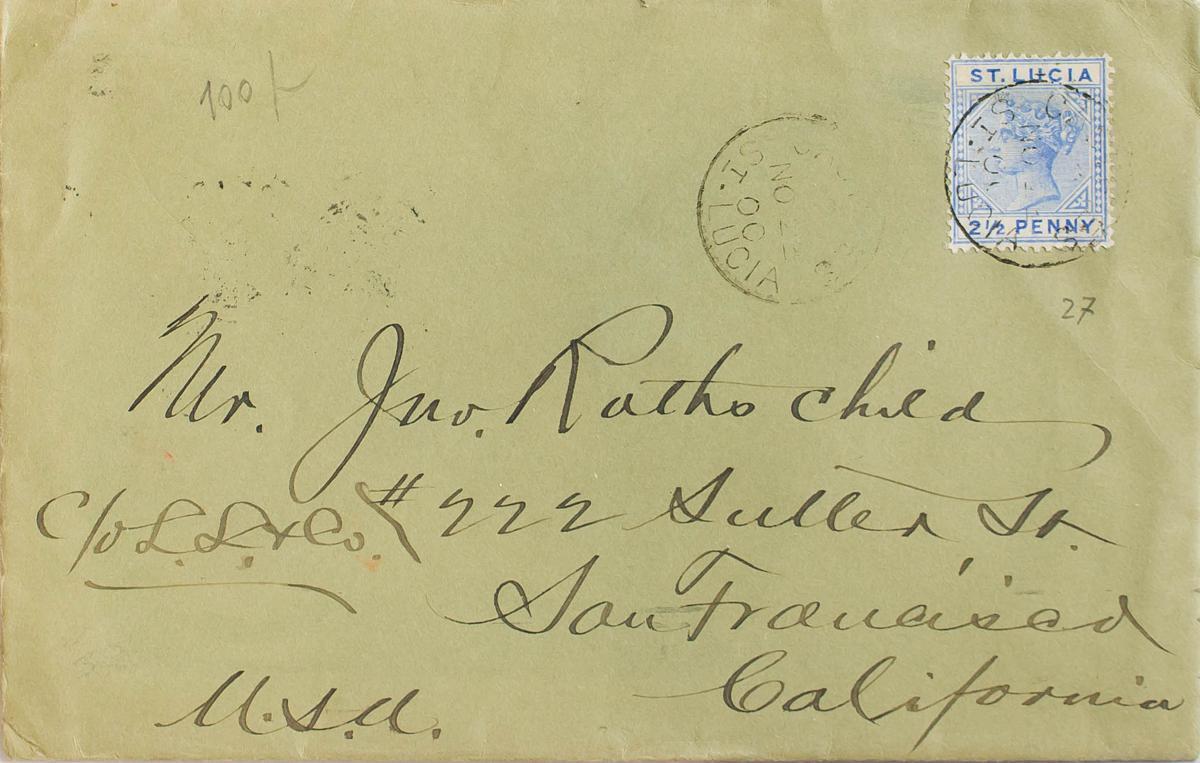 100/-
ST. LUCIA
2½ PENNY
ST. LUCIA
NO
00
27
Mr. Jno. Rothschild
c/o L. L. & Co. #222 Sutter St.
San Francisco
California
U.S.A.